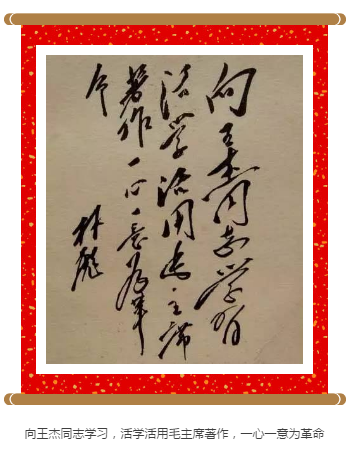 向王杰同志学习
活学活用毛主席
著作一心一意为革
命
林彪
向王杰同志学习，活学活用毛主席著作，一心一意为革命